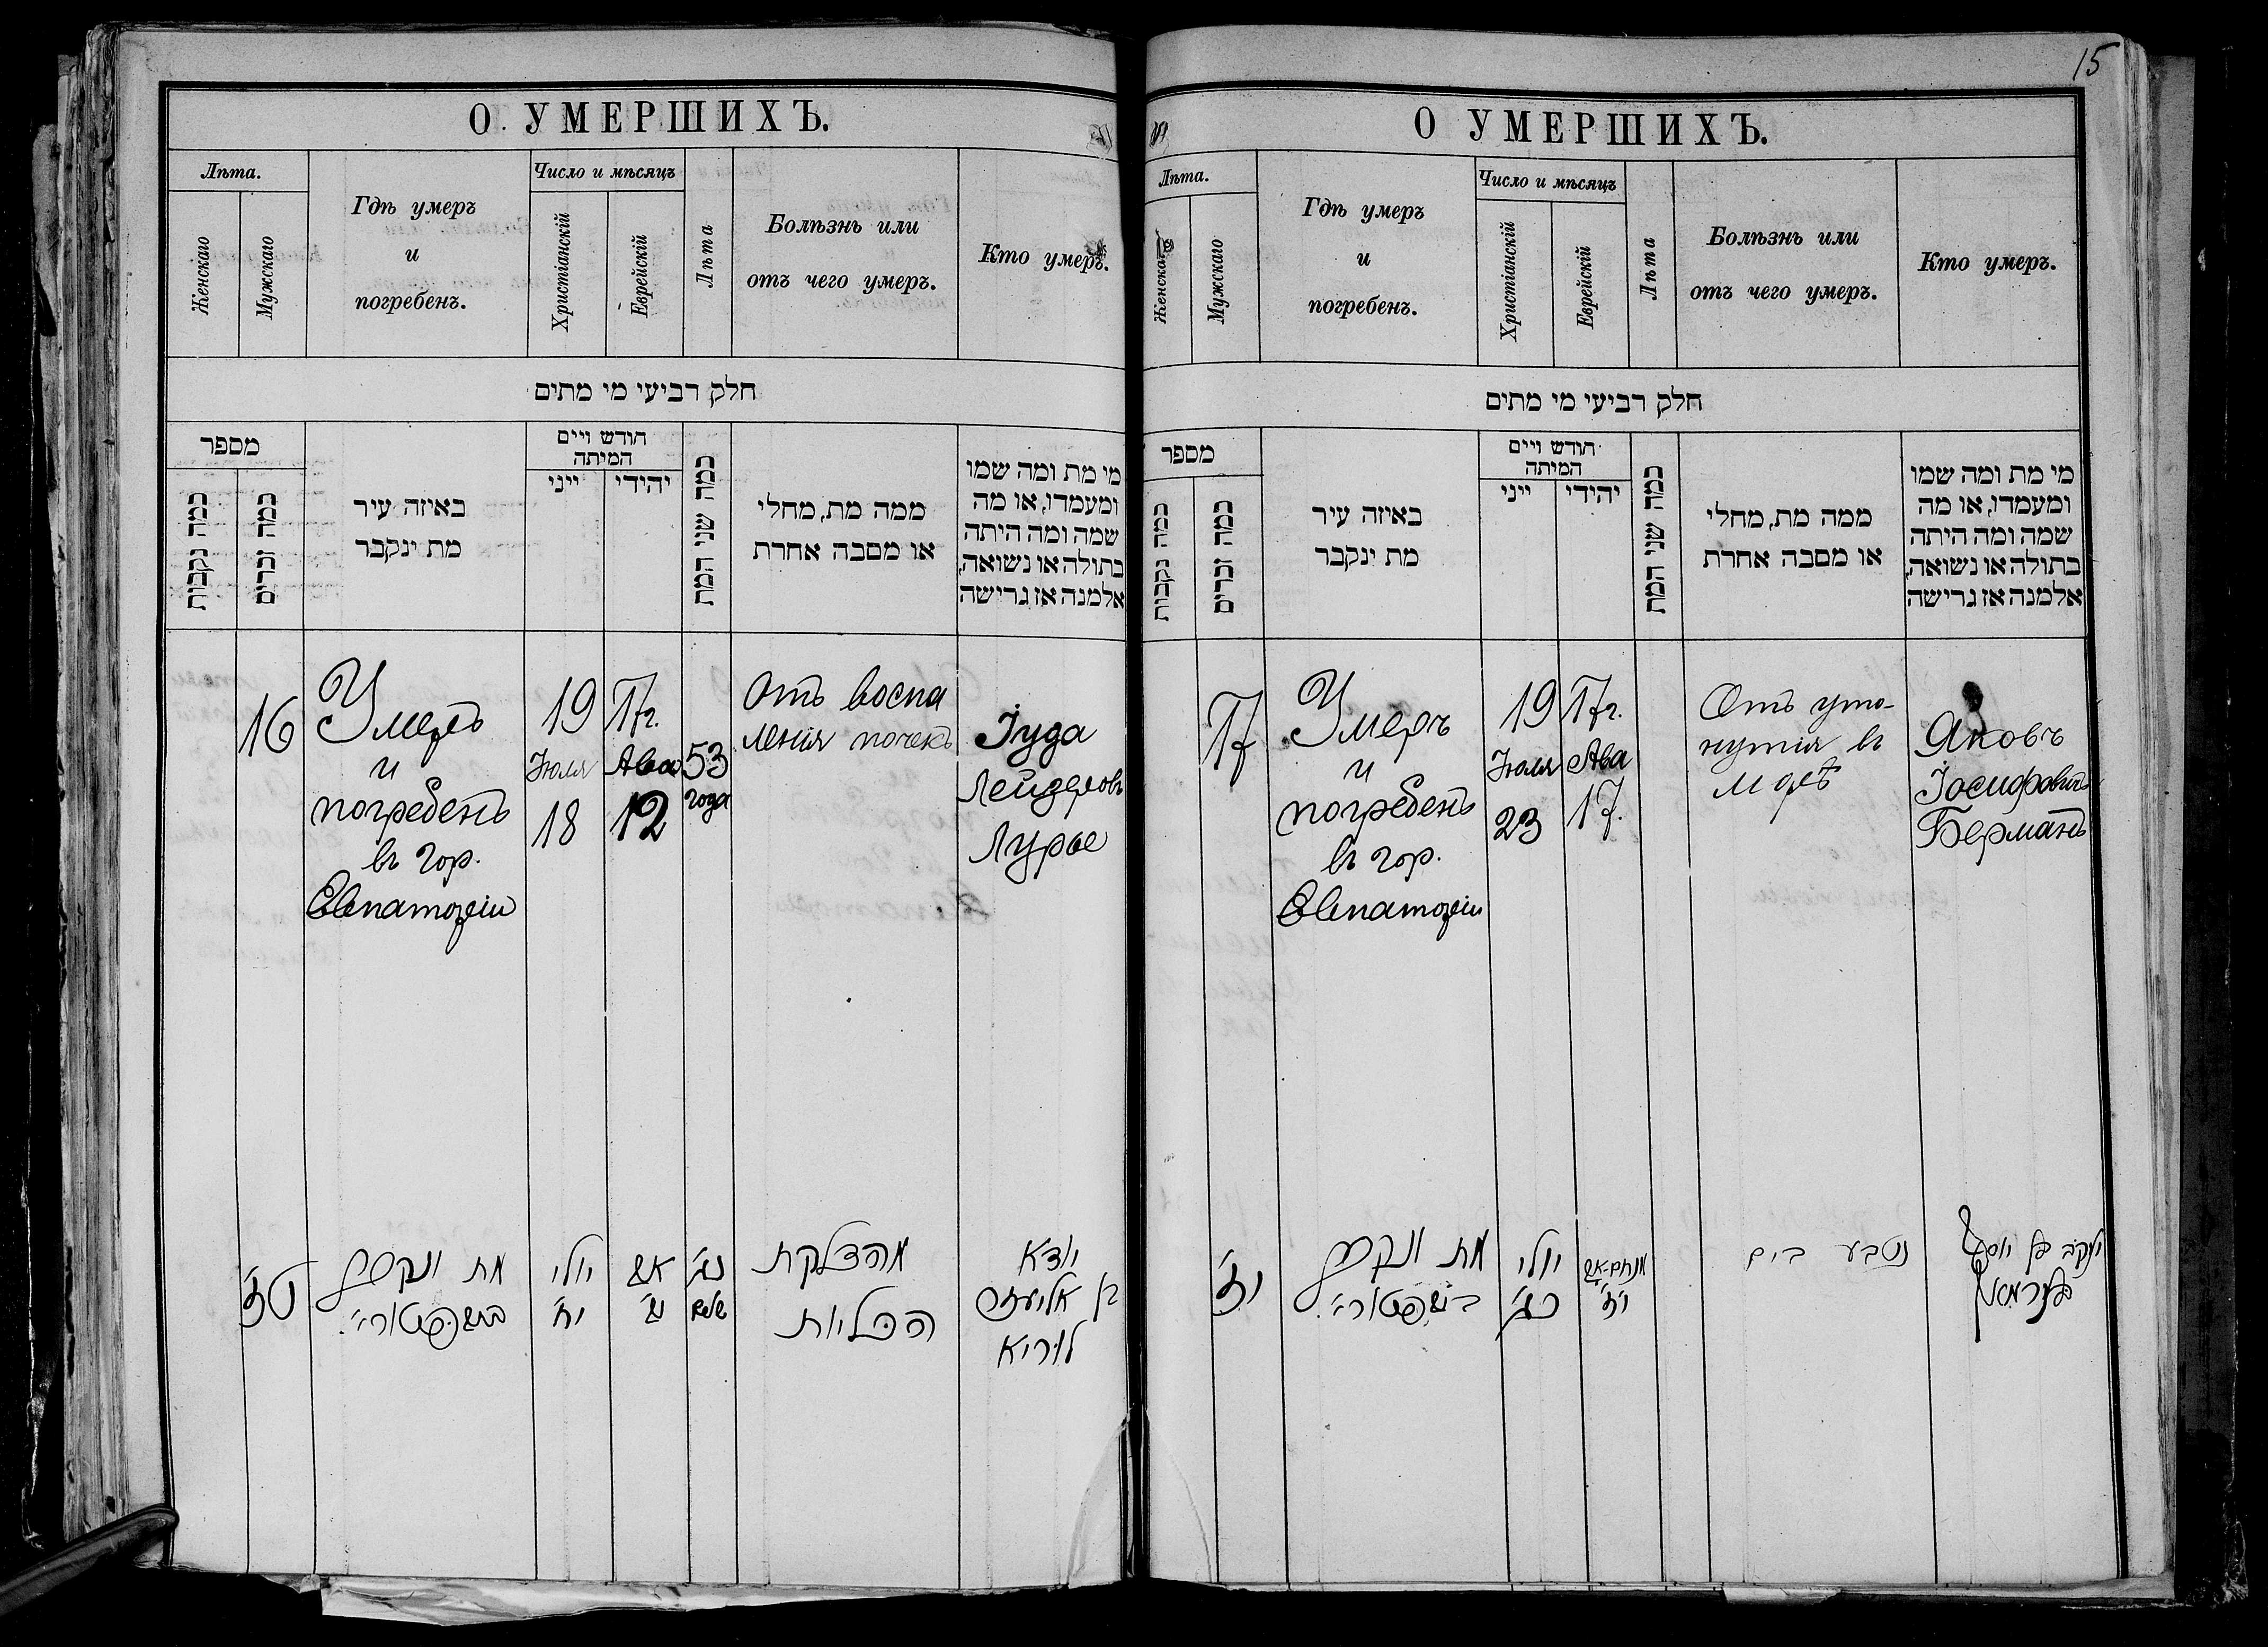 15
О УМЕРШИХЪ.
Лѣта.
Женскаго
Мужскаго
Гдѣ умеръ
и
погребенъ.
Число и мѣсяцъ
Христіанскій
Еврейскій
Лѣта
Болѣзнь или
отъ чего умеръ.
Кто умеръ.
חלק רביעי מי מתים
מספר
כמה נקבות
כמה זכרים
באיזה עיר
מת ינקבר
חודש ויים
המיתה
ייני
יהודי
כמה שני המת
ממה מת, מחלי
או מסבה אחרת
מי מת ומה שמו
ומעמדו, או מה
שמה ומה היתה
בתולה או נשואה,
אלמנה אז גרישה
16
Умеръ
и
погребенъ
въ гор.
Евпаторіи
19
Іюля
18
17г.
Ава
12
53
года
Отъ воспа
ленія почекъ
Іуда
Лейзеровъ
Лурье
טז
מת ונקבר
יולי
יח
אב
נג
שנים
מהדלקת
הכליות
יודא
בן אליעזר
לוריא
О УМЕРШИХЪ.
Лѣта.
Женскаго
Мужскаго
Гдѣ умеръ
и
погребенъ.
Число и мѣсяцъ
Христіанскій
Еврейскій
Лѣта
Болѣзнь или
отъ чего умеръ.
Кто умеръ.
חלק רביעי מי מתים
מספר
כמה נקבות
כמה זכרים
באיזה עיר
מת ינקבר
חודש ויים
המיתה
ייני
יהודי
כמה שני המת
ממה מת, מחלי
או מסבה אחרת
מי מת ומה שמו
ומעמדו, או מה
שמה ומה היתה
בתולה או נשואה,
אלמנה אז גרישה
17
Умеръ
и
погребенъ
въ гор.
Евпаторіи
19
Іюля
23
17г.
Ава
17.
Отъ уто-
нутія въ
морѣ
Яковъ
Іосифовичъ
Берманъ
יז
מת ונקבר
יולי
כג
מנחם-אב
יז
נטבע בים
יעקב בן יוסף
בערמאן